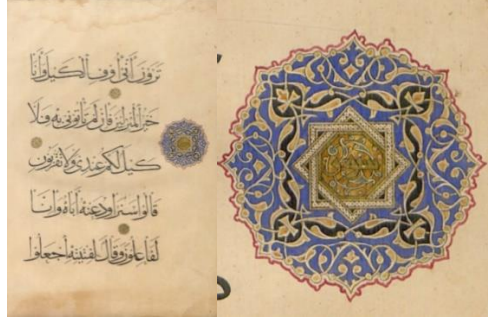 ترون أني أوف الكيل وأنا
خير المنزلين فإن لم تأتوني به فلا
كيل لكم عندي ولا تقربون
قالوا سنراود عنه أباه وإنا
لفاعلون وقال لفتيته اجعلوا